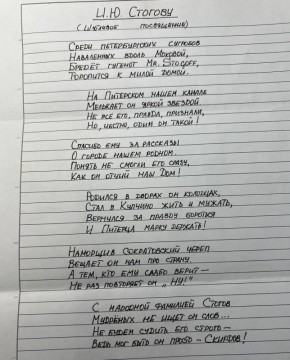 И.Ю СТОГОВУ
(Шутливое посвящение)
Среди петербургских сугробов
Наваленных вдоль Моховой,
Бредёт гугенот Mr. Stogoff,
Торопится к милой домой.
На Питерском нашем канале
Мелькает он яркой звездой.
Не все его, правда, признали,
Но, честно, один он такой!
Спасибо ему за рассказы
О городе нашем родном.
Понять не смогли его сразу,
Как он отчий наш Дом!
Родился в дворах он колодцах,
Стал в Купчино жить и мужать,
Вернулся за правду бороться
И Питерца марку держать!
Наморщив Сократовский череп
Вещает он нам про страну.
А тем, кто ему слабо верит —
Не раз повторяет он „НУ!"
С народной фамилией Стогов
Мудрёных не ищет он слов...
Не будем судить его строго —
Ведь мог быть он просто — Скирдов!